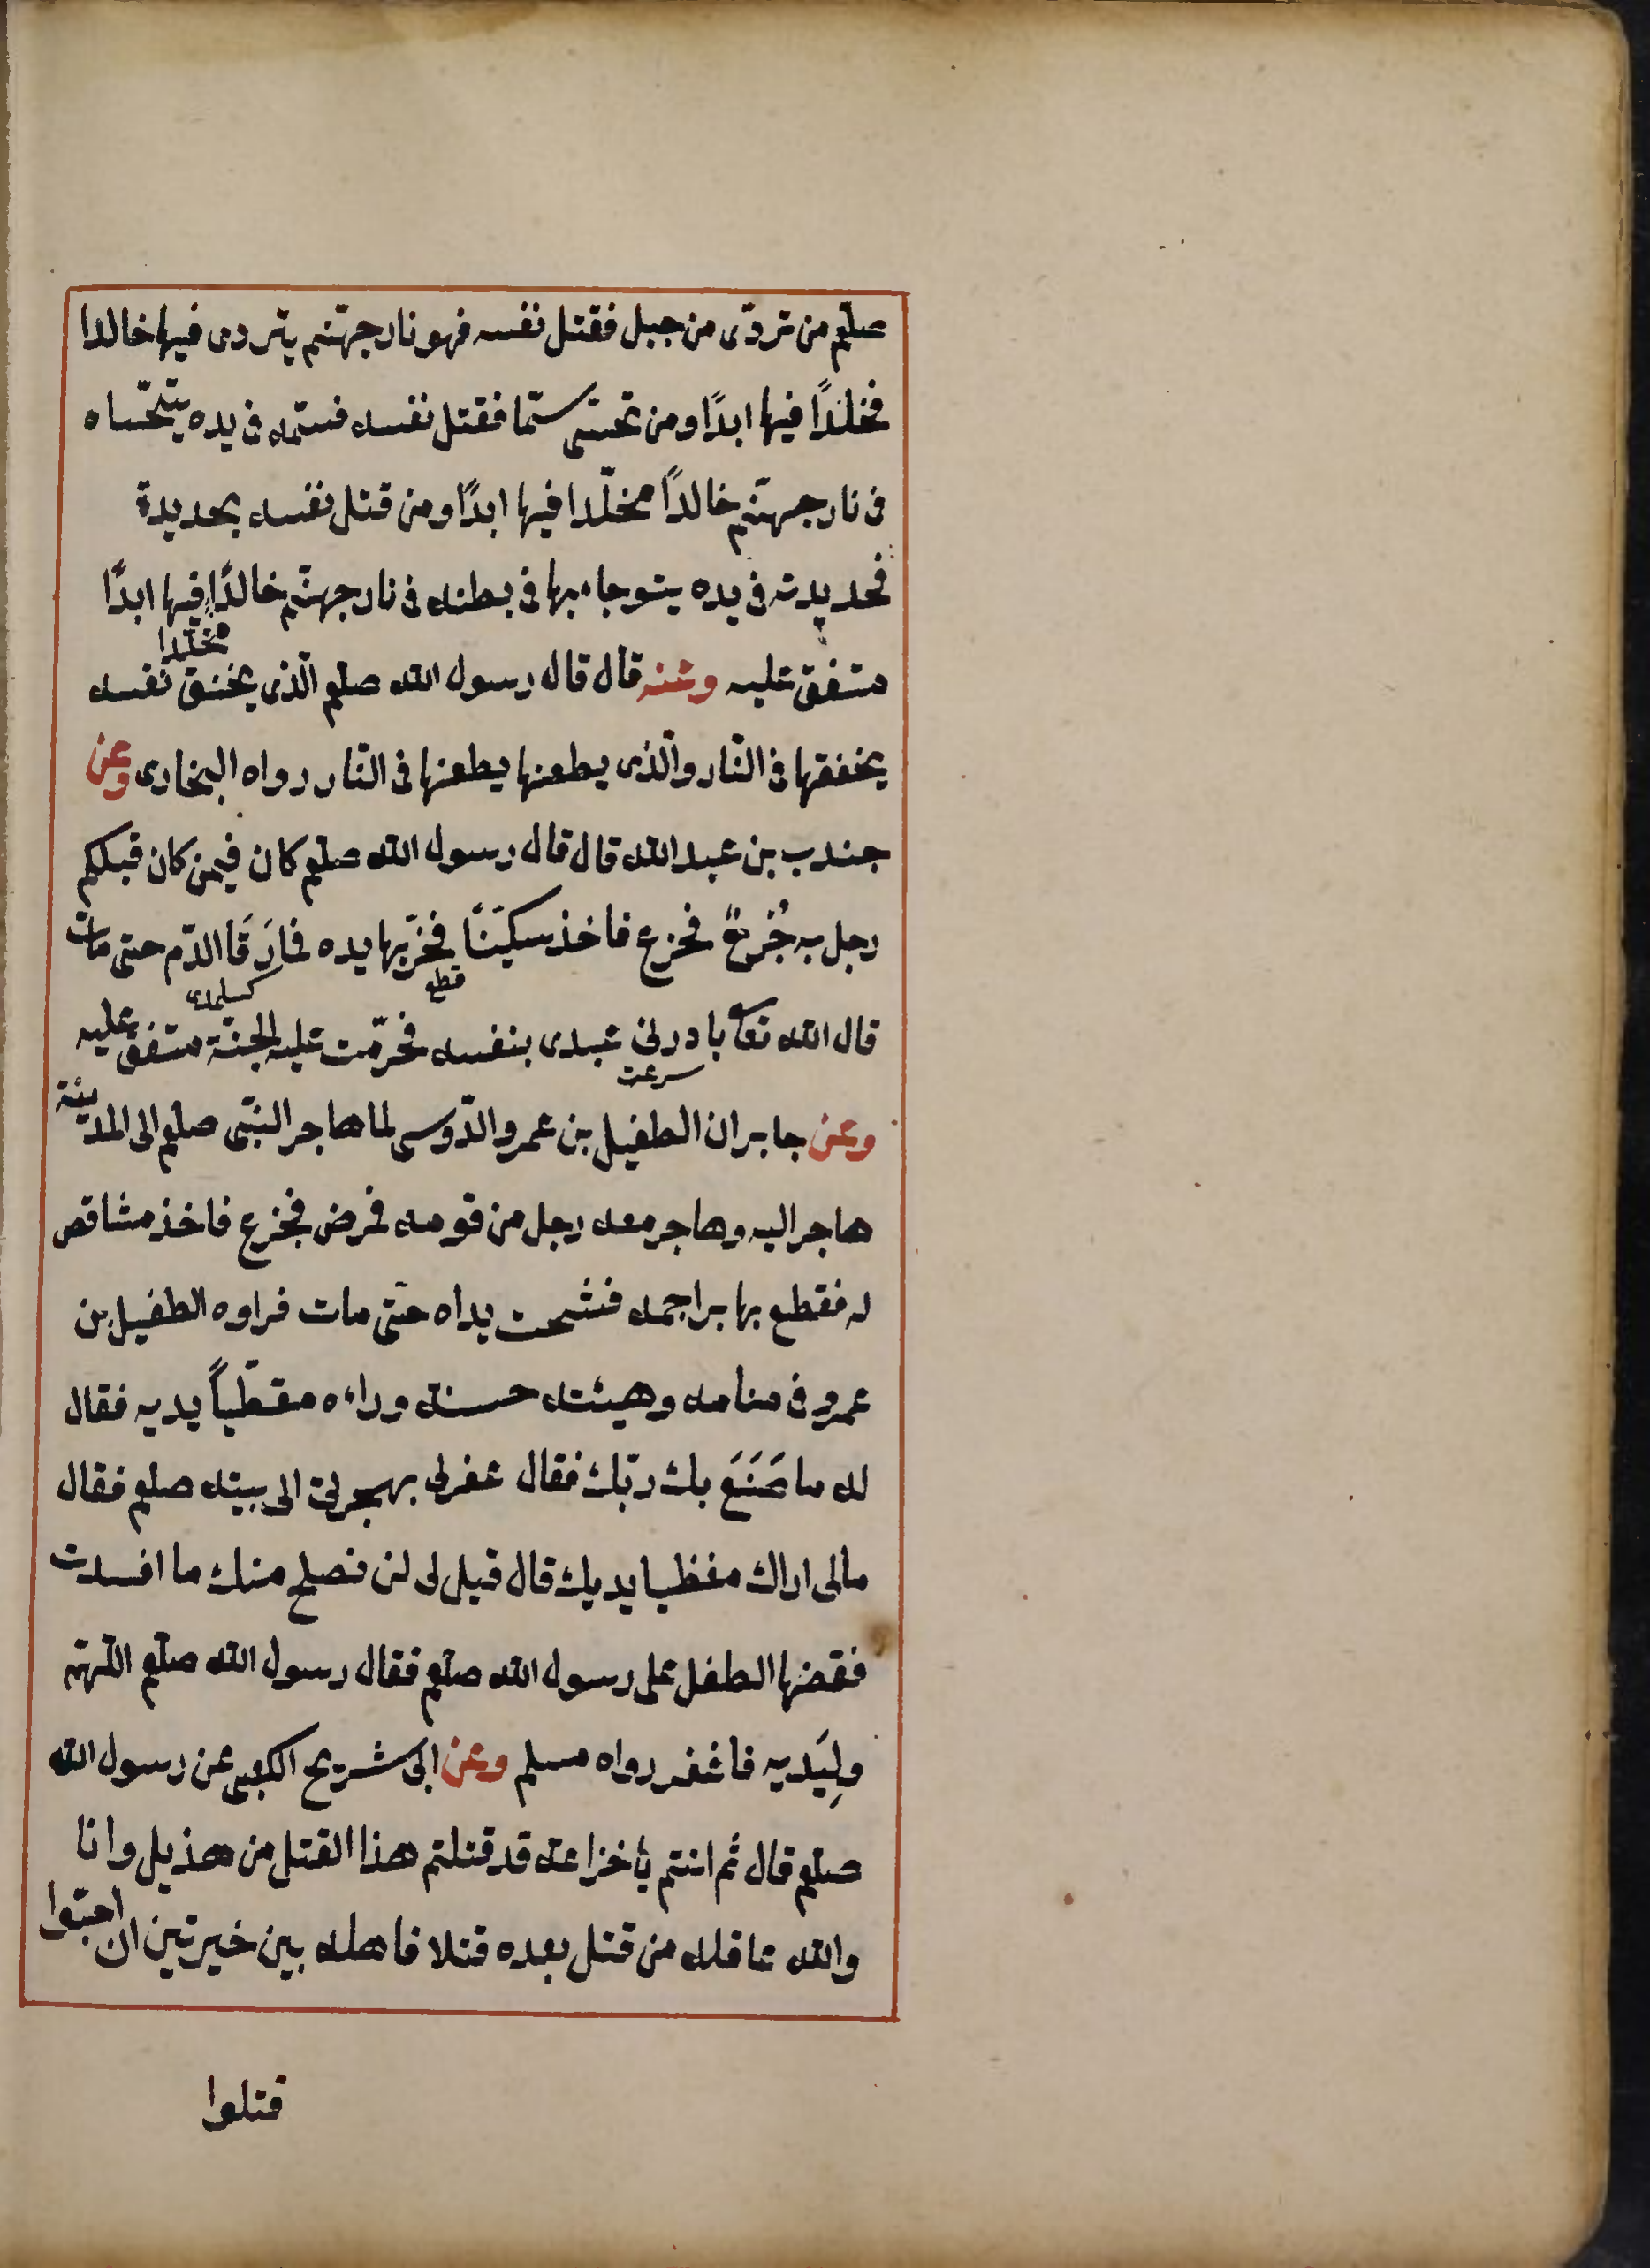 صلعم من تردّى من جبل فقتل نفسه فهو نار جهنّم يتردى فيها خالدا
مخلدًا فيها ابدًا ومن تحسّى سمّا فقتل نفسه فسمّه فى يده يتحّساه
فى نار جهنّم خالدًا مخلّدا فيها ابدًا ومن قتل نفسه بحديدة
فحديدته فى يده يتوجاء بها فى بطنه فى نار جهنّم خالدًا فيها ابدًا
مخلّدا
متفق عليه وعنه قال قال رسول الله صلعم الّذى يخنق نفسه
يخفقها فى النّار والّذى يطعنها يطعنها فى النّار رواه البخارى وعن
جندب بن عبد الله قال قال رسول الله صلعم كان فيمن كان قبلكم
رجل به جُرحٌ فجزع فاخذ سكيّنًا فحزّبها يده فمارَقَا الدّم حتى مات
قطع
قال الله تعا بادرنى عبدى بنفسه فحرّمت عليه الجنّة متفق عليه
سرعت
وعن جابر ان الطفيل بن عمرو الدّوسى لما هاجر النبّى صلعم الى المدينة
هاجر اليه وهاجر معه رجل من قومه فمرض فجزع فاخذ مشاقص
له فقطع بها براجمه فشخت يداه حتّى مات فراوه الطفيل بن
عمرو فى منامه وهيئته حسنة وراءه مقطّياً يديه فقال
له ما صَنَعَ بك ربّك فقال غفرلى بهجرتى الى بيته صلعم فقال
مالى اراك مغظيا يديك قال قيل لى لن نصلح منك ما افسدت
فقضها الطفل على رسول الله صلعم فقال رسول الله صلعم اللّهمّ
ولِيَديه فاغفر رواه مسلم وعن ابى شريح الكعبى عن رسول الله
صلعم قال ثم انتم يا خزاعة قد قتلتم هذا القتل من هذيل وانا
والله عاقله من قتل بعده قتلا فاهله بين خيرتين ان احبّوا
قتلوا